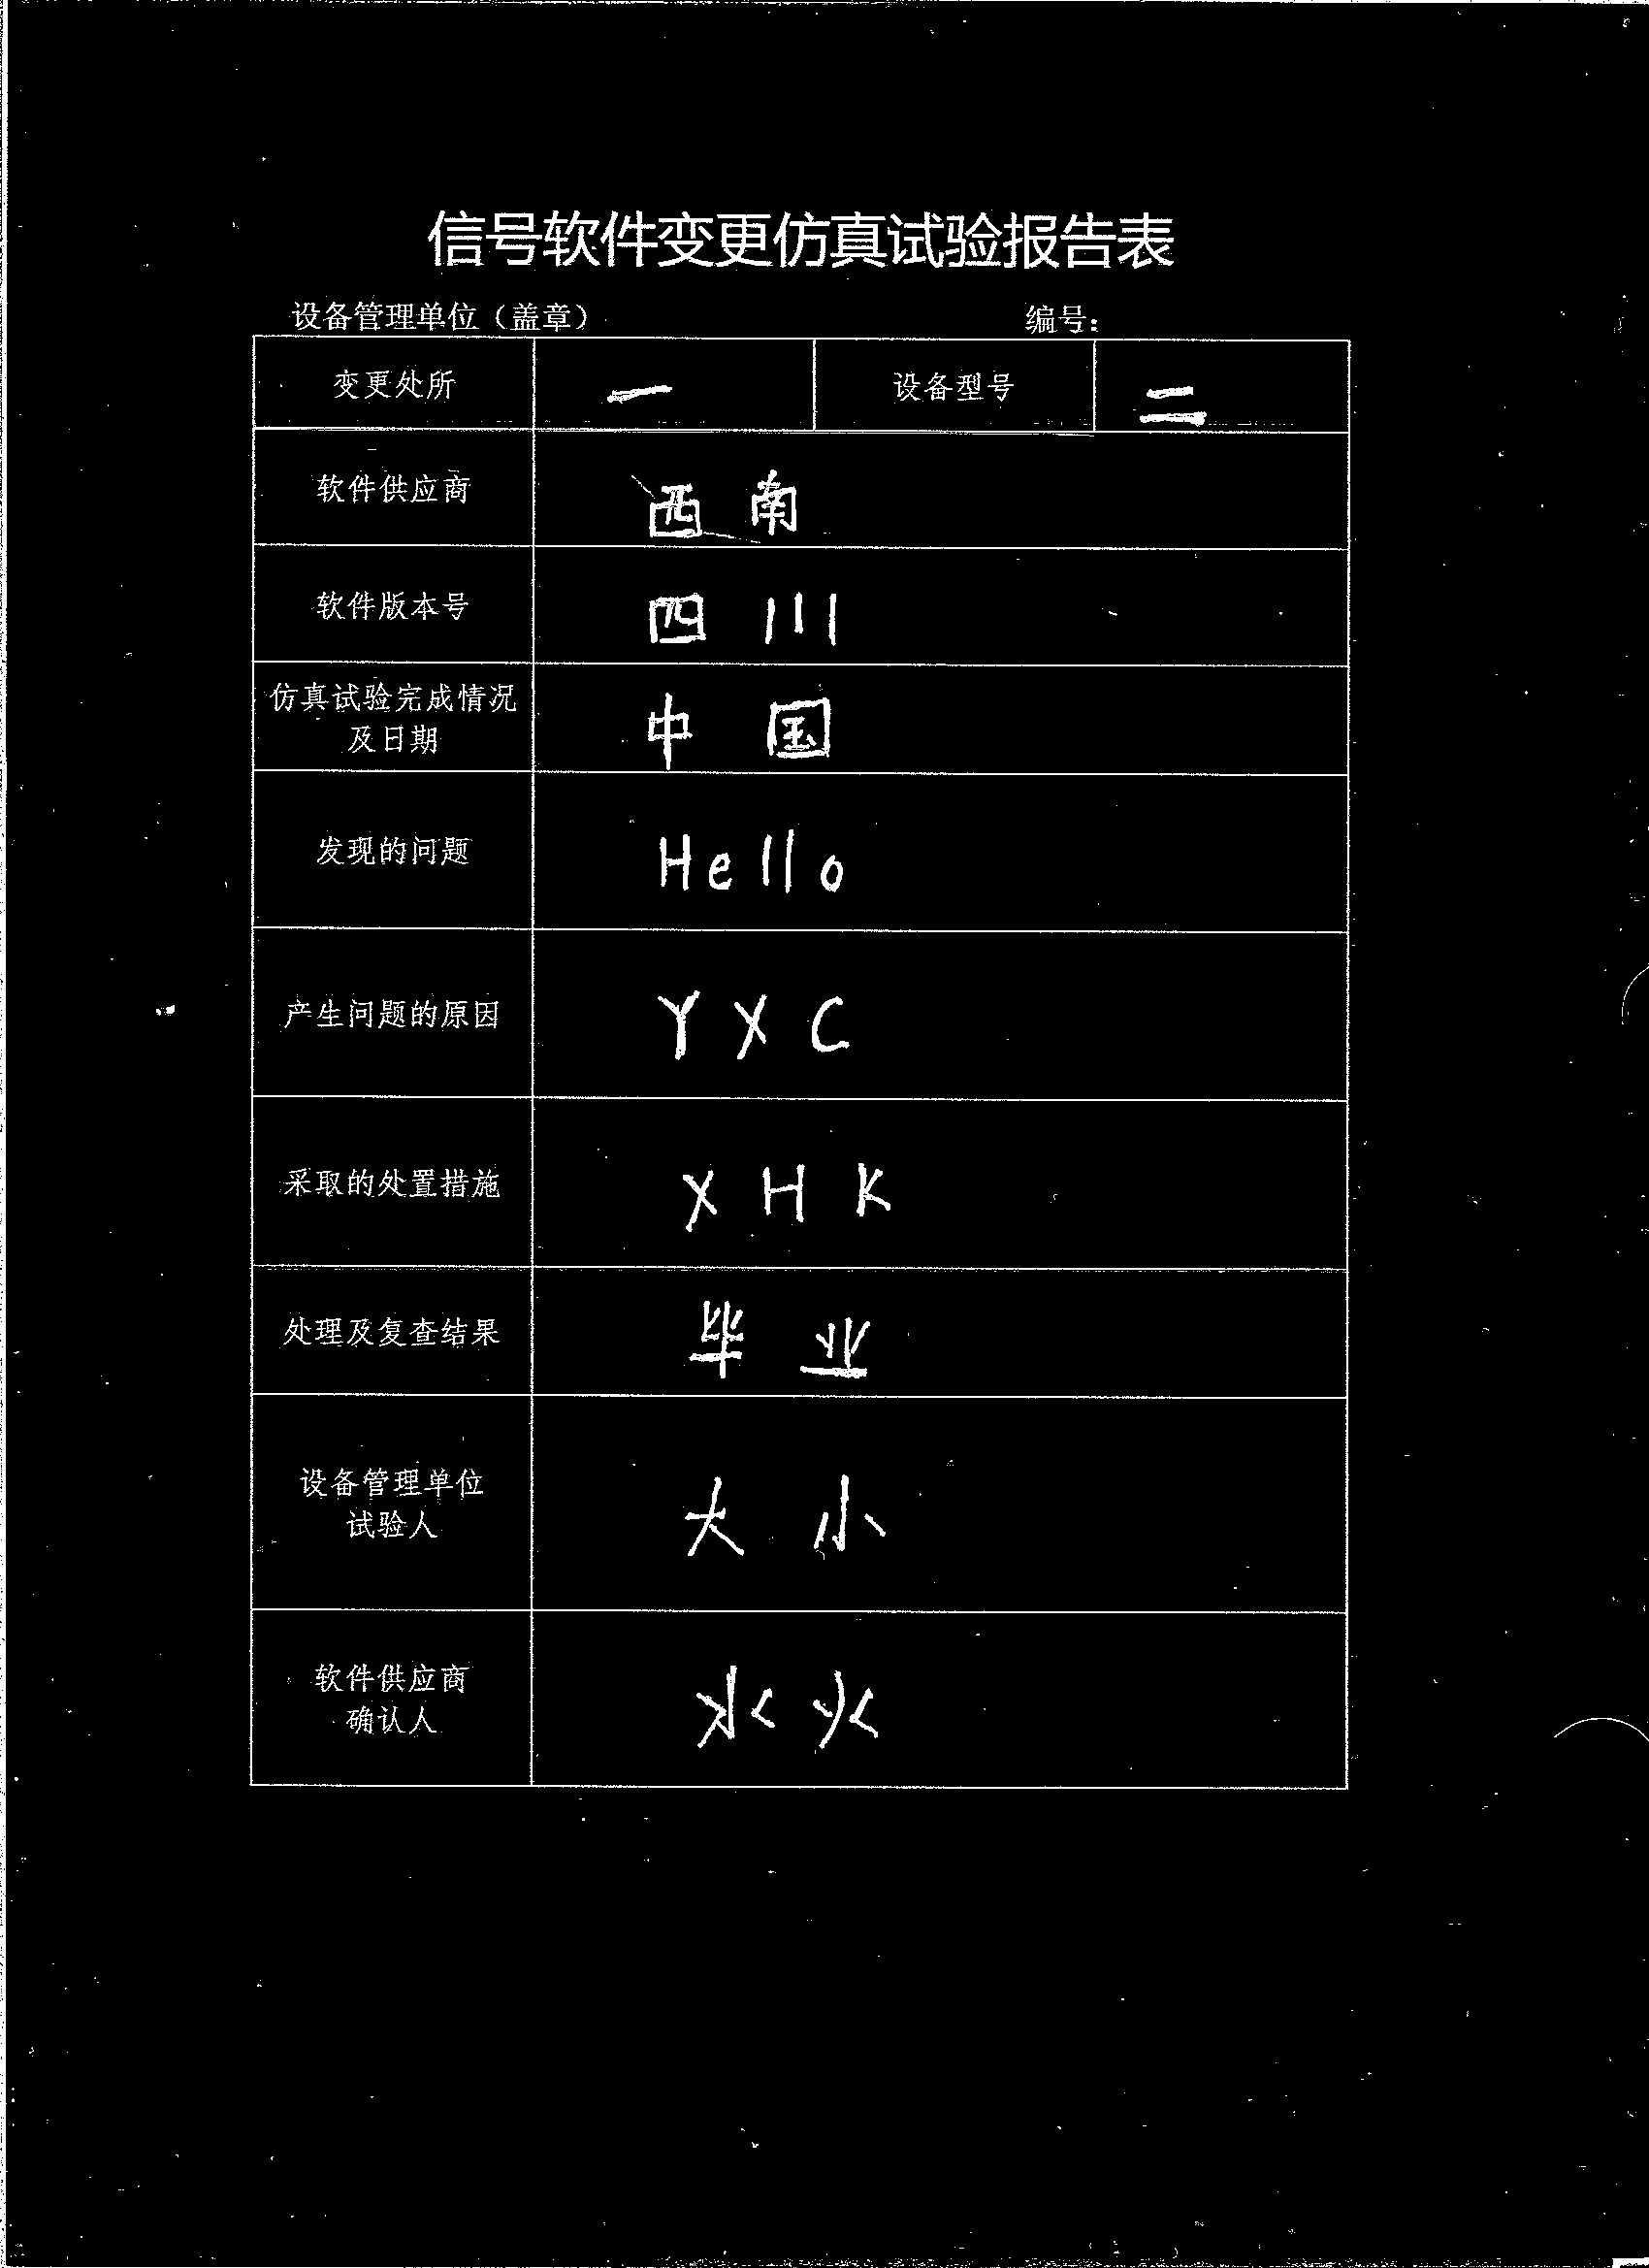 信号软件变更仿真试验报告表
设备管理单位（盖章） 编号：
变更处所 一 设备型号 二
软件供应商 西南
软件版本号 四川
仿真试验完成情况
及日期 中国
发现的问题 Hello
产生问题的原因 YXC
采取的处置措施 XHK
处理及复查结果 毕业
设备管理单位
试验人 大小
软件供应商
确认人 水火